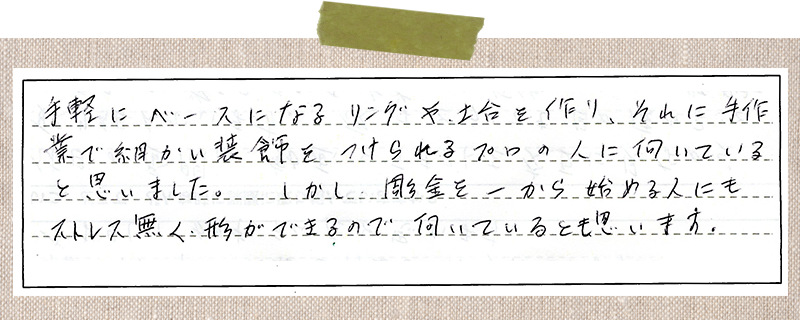 手軽にベースになるリングや土台を作り、それに手作
業で細かい装飾をつけられるプロの人に向いている
と思いました。 しかし、彫金を一から始める人にも
ストレス無く、形ができるので向いているとも思います。